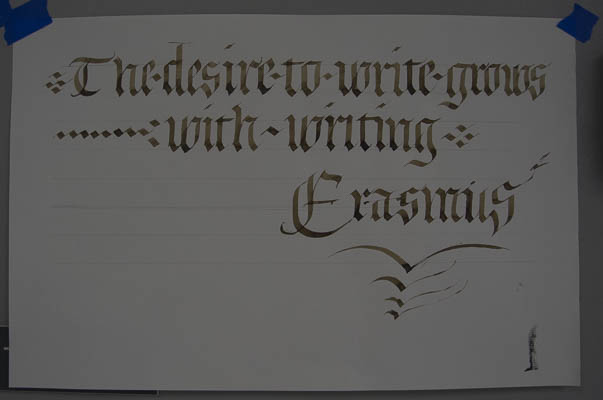 The·desire·to·write·grows
with~writing
Erasmus